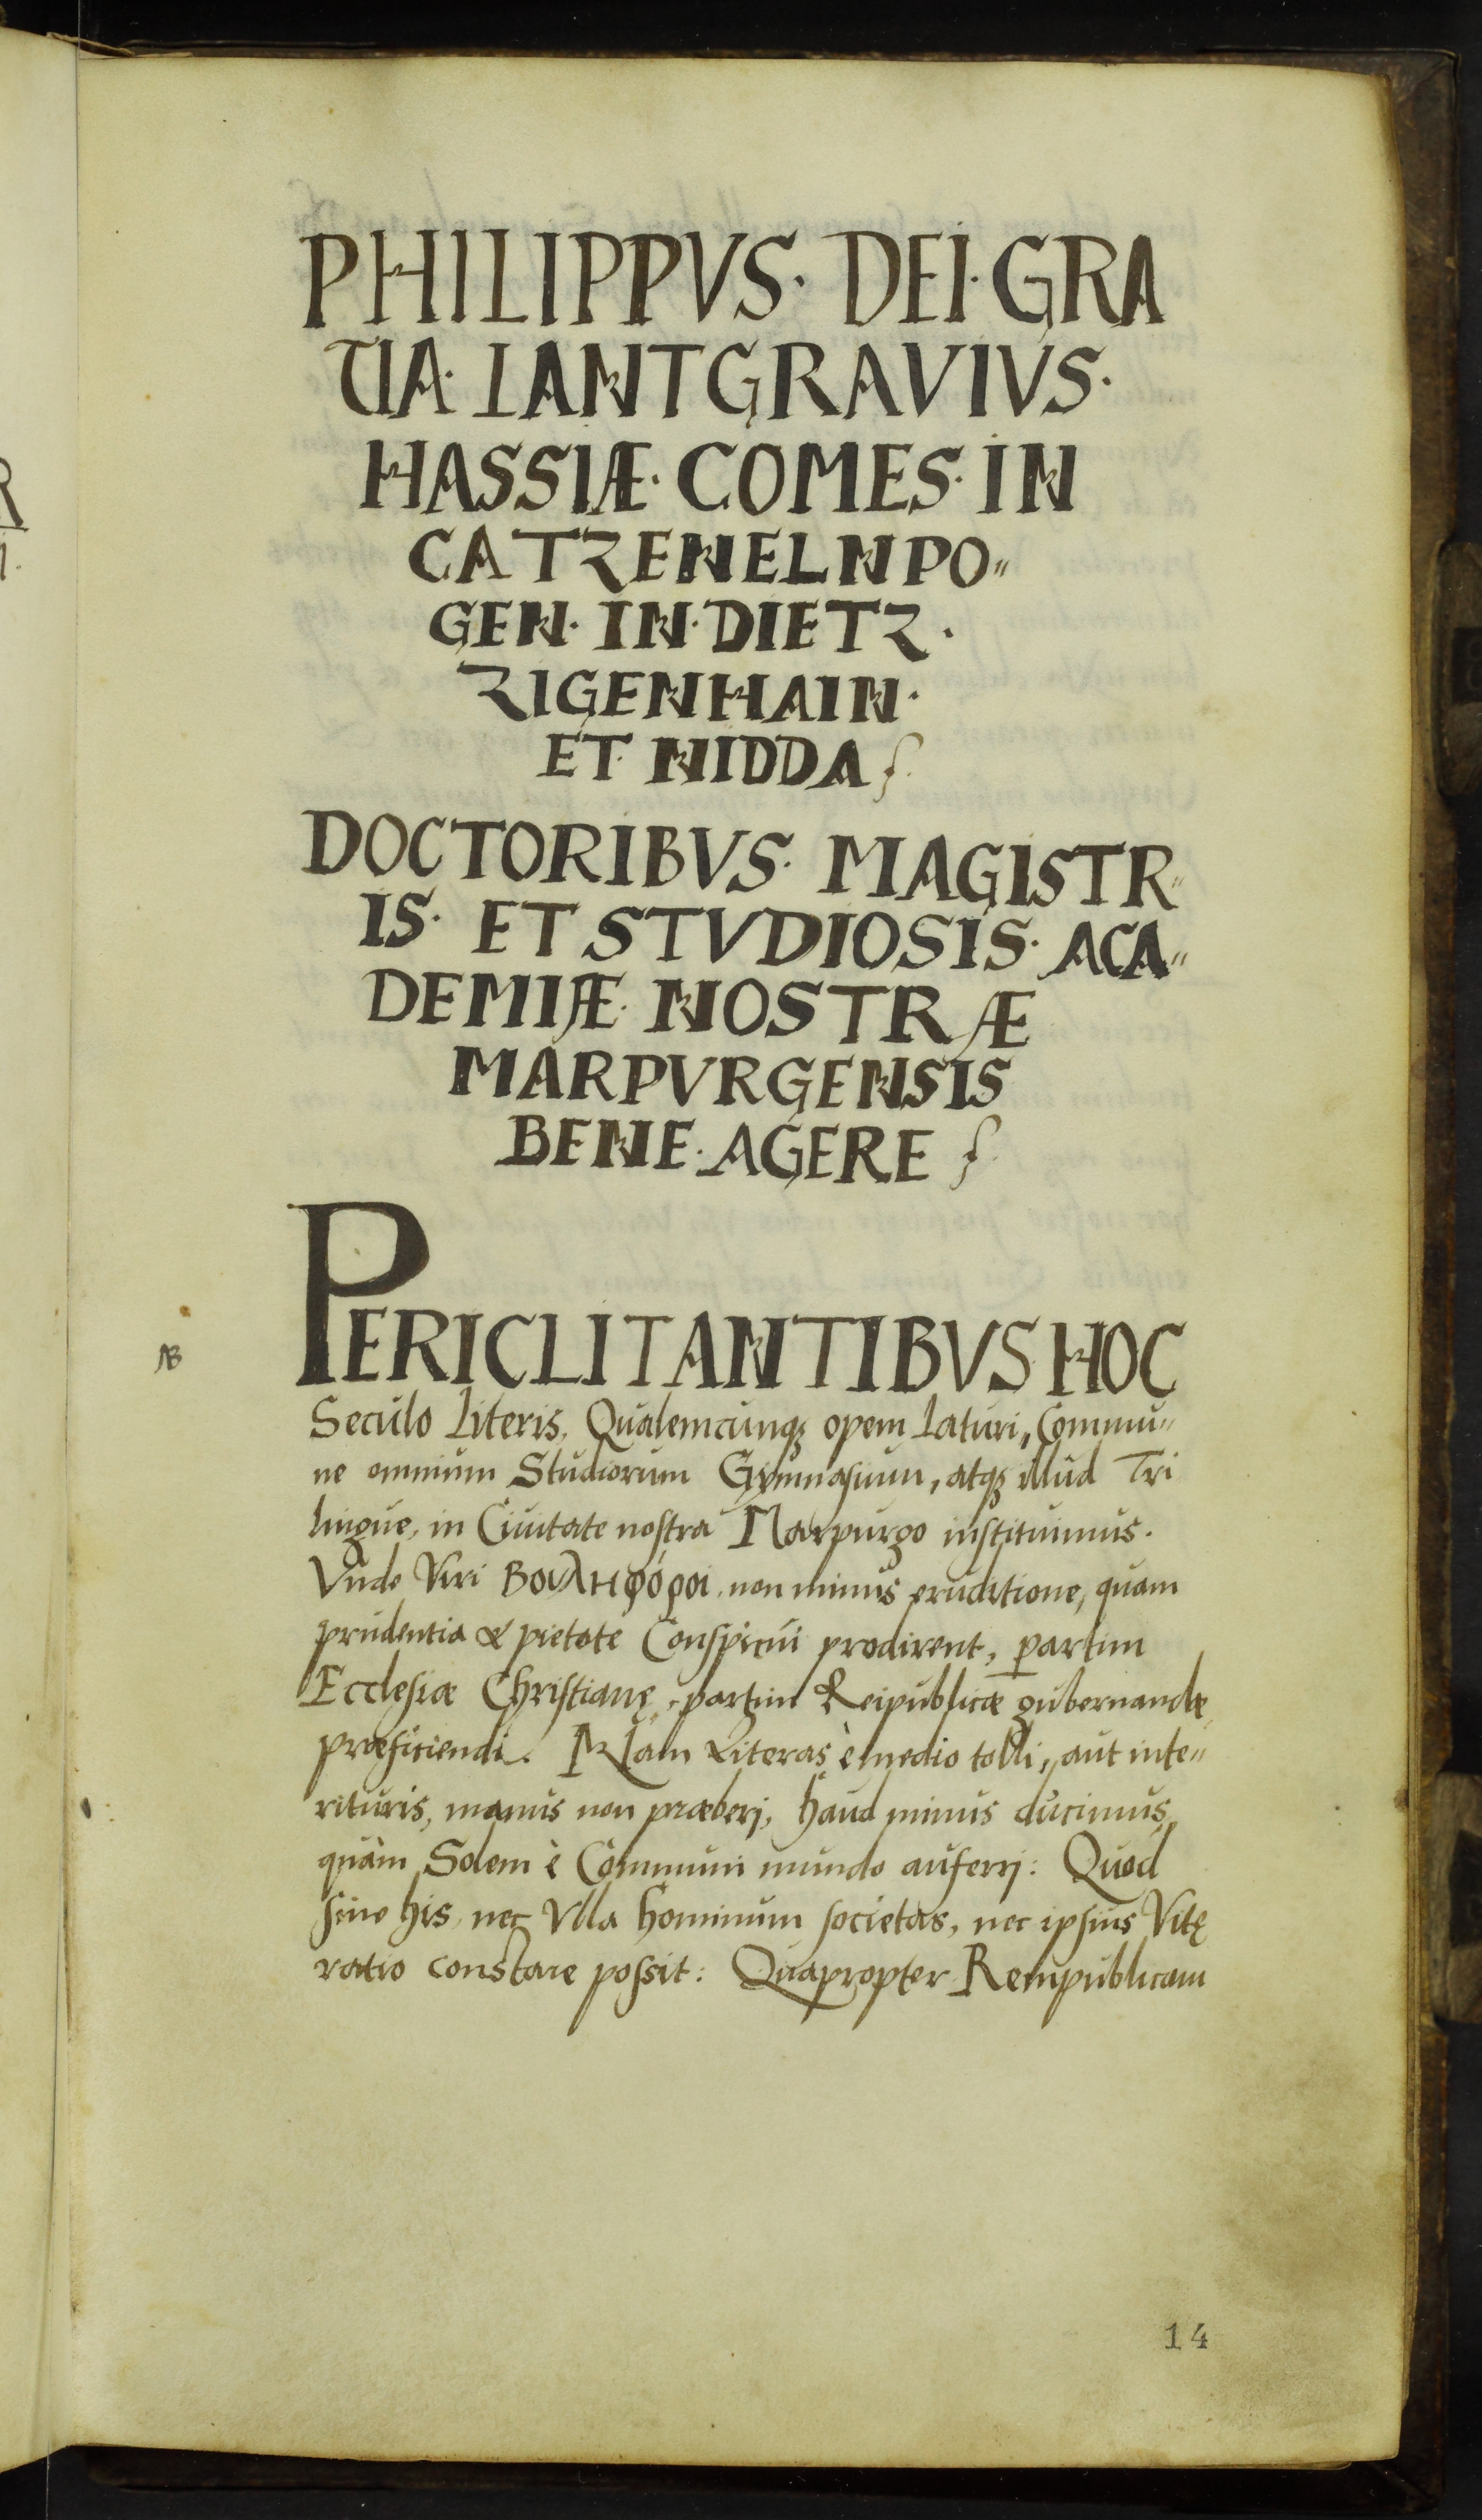 PHILIPPVS· DEI·GRA
TIA· LANTGRAVIVS·
HASSIÆ· COMES· IN
CATZENELNPO〃
GEN· IN· DIETZ·
ZIGENHAIN·
ET· NIDDA
DOCTORIBVS· MAGISTR〃
IS· ET STVDIOSIS· ACA〃
DEMIÆ· NOSTRÆ
MARPVRGENSIS
BENE· AGERE
PERICLITANTIBVS HOC
NB
Seculo Literis, Qualemcunqꝫ opem Laturi, Commu〃
ne omnium Studiorum Gymnasium, atqꝫ illud Tri
lingue, in Ciuitate nostra Marpurgo instituimus.
Vnde Viri Βουληφόροι, non minus eruditione, quam
prudentia & pietate Conspicui prodirent, partim
Ecclesiæ Christianę, partim Reipublicæ gubernandæ
præficiendi. Nam Literas è medio tolli, aut inte〃
rituris, manus non præberj, haud minus ducimus,
quàm Solem è Communi mundo auferrj: Quod
sine his, nec Vlla hominum societas, nec ipsius Vitę
ratio constare possit: Quapropter Rempublicam
14